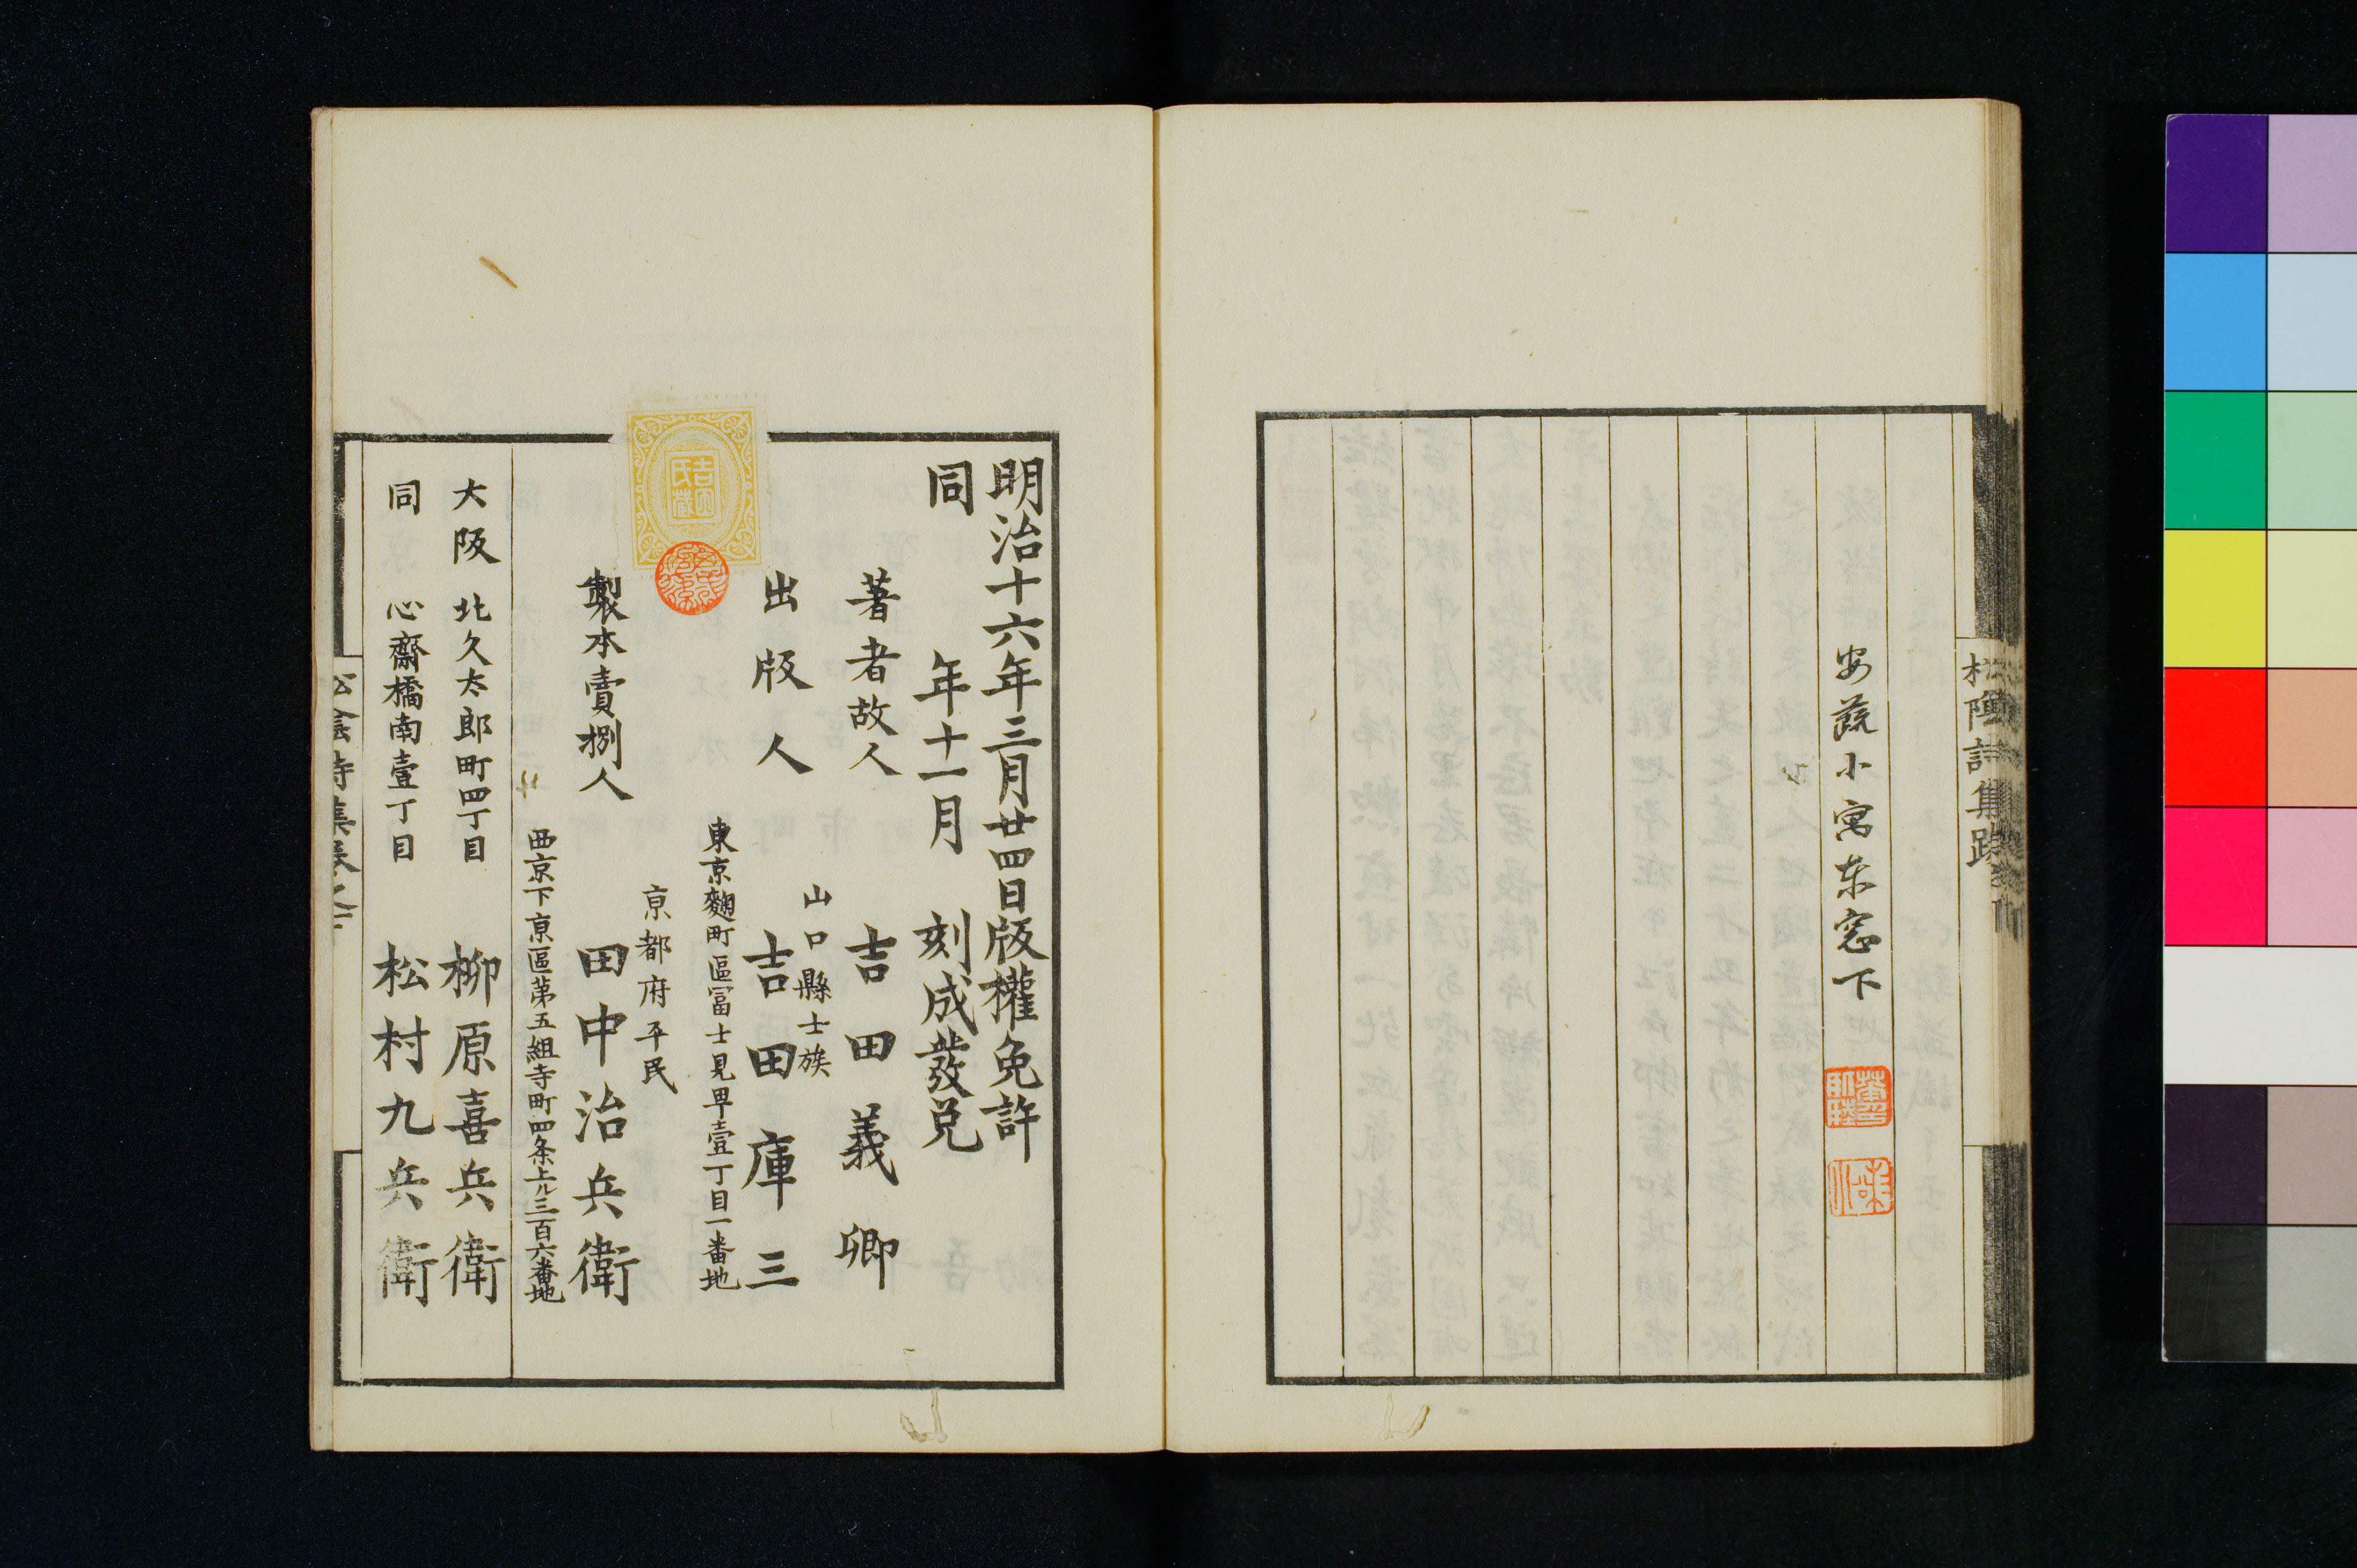 松陰詩集跋
安蔬小寓东窓下
明治十六年三月廿四日版權免許
同　年十一月　刻成發兌
著者故人　吉田義卿
山口縣士族
出版人　吉田庫三
東京麴町區冨士見町壹丁目一番地
京都府平民
製本賣捌人　田中治兵衛
西京下京區第五組寺町四条上ル三百六番地
大阪　北久太郎町四丁目　柳原喜兵衛
同　心齋橋南壹丁目　松村九兵衛
吉田氏蔵